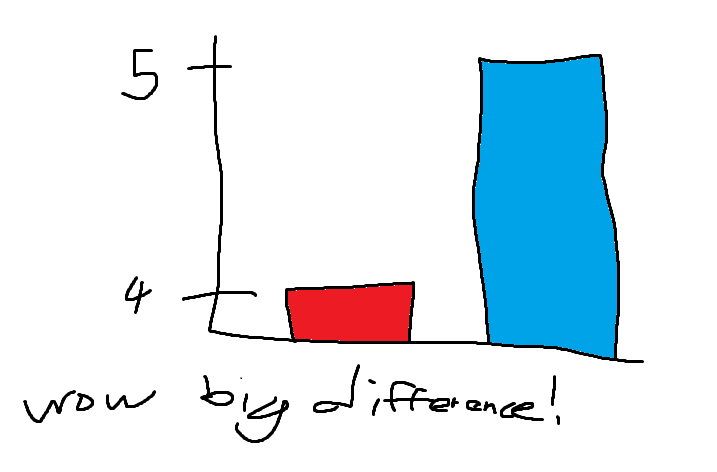 5
4
wow big difference!